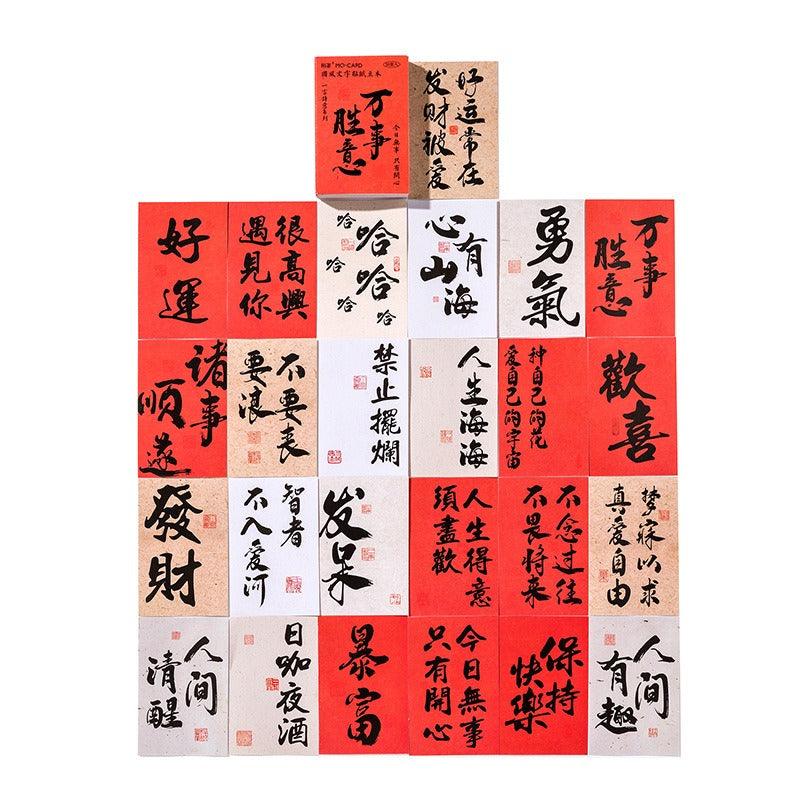 MO·CARD
國風文字貼紙
万事
胜意
今日無事 只有開心
好运常在
发财被爱
好運
很高興
遇見你
哈
哈
哈
哈
哈
哈
哈
心有
山海
勇氣
万事
胜意
諸事
順遂
不要喪
要浪
禁止擺爛
人生海海
种自己的花
爱自己的宇宙
歡喜
發財
智者
不入爱河
发呆
人生得意
須盡歡
不念过往
不畏将来
梦寐以求
真爱自由
人间
清醒
日咖夜酒
暴富
今日無事
只有開心
保持
快樂
人间
有趣